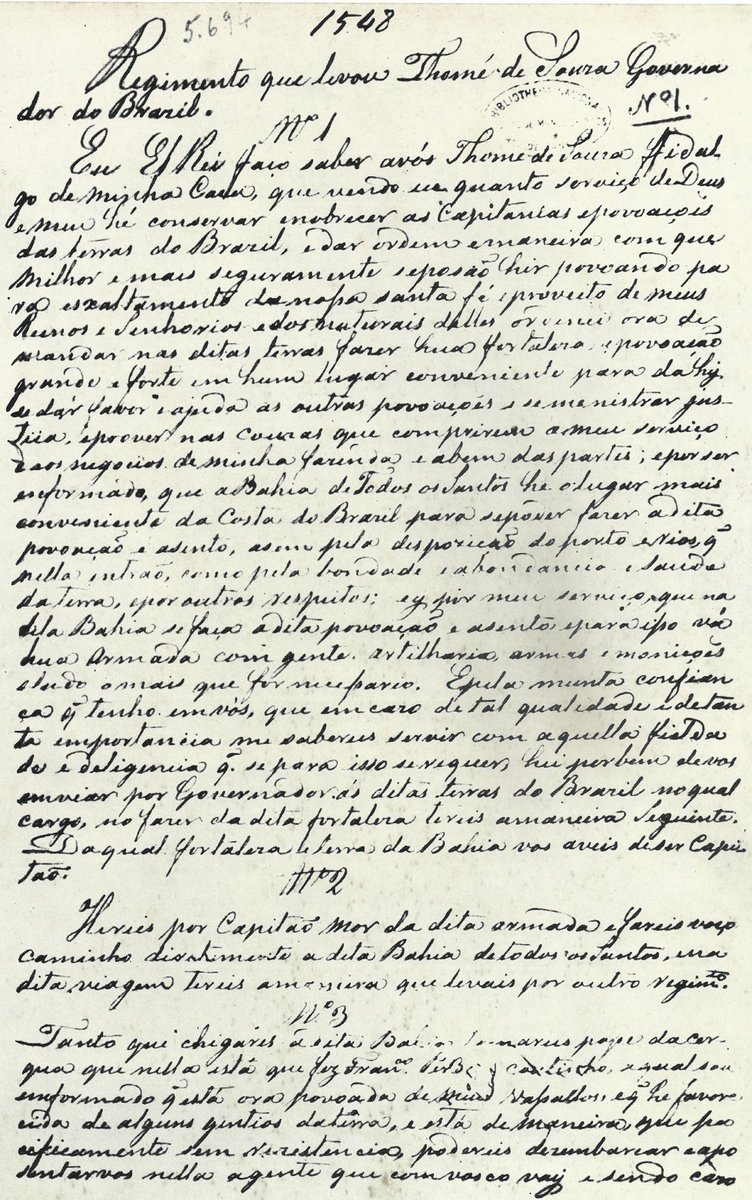 5.694
1548
Regimento que levou Thomé de Souza Governa
dor do Brazil.
Nº 1.
Nº 1
Eu El Rei faço saber avós Thome de Souza fidal
go de minha Caza, que vendo eu quanto serviço de Deus
e meu hé conservar enobrecer as Capitanias epovoaçois
das terras do Brazil, edar ordem emaneira com que
milhor e mais seguramente seposão hir povoando pa
ra exzaltamento da nossa santa fé eproveito de meus
Reinos e Senhorios edos naturais delles ordenei ora de
mandar nas ditas terras fazer hua fortaleza epovoação
grande e forte em hum lugar conveniente para dahy
se dar favor eajuda as outras povoações e se menistrar jus-
tiia, eprover nas couzas que comprirem a meu serviço
eaos negocios de minha fazenda e abem das partes; epor ser
enformado, que a Bahia de Todos os Santos he o lugar mais
conveniente da Costa do Brazil para sepòver fazer adita
povoação e asento, asem pela despozição do porto erios, q̃
nella entrão, como pela bondade eabondancia e saude
da terra, epor outros respeitos; ey por meu serviço, que na
dita Bahia se faça adita povoação e asento epará isso vá
hua Armada com gente artilharia, armas e monições
etudo o mais que for necessario. Epela muuta confian
ça q̃ tenho em vós, que em cazo de tal qualidade e de tan
ta importancia me sabereis servir com aquella fielda
de e deligencia q̃ se para isso se requer, hei por bem de vos
enviar por Governador ás ditas terras do Brazil no qual
cargo, no fazer da dita fortaleza tereis amaneira Seguinte.
Da qual fortaleza e terra da Bahia vos aveis de ser Capi-
tão.
Nº 2
Hereis por Capitão mor da dita armada efareis voço
caminho diretamente a dita Bahia de todos os Santos, ena
dita viagem tereis amaneira que levais por outro regimto.
Nº 3
Tanto que chigares á dita Bahia tomareis posse da cer-
qua que nella está que fez Franco Per̃ Coutinho, aqual sou
enformado q̃ está ora povoada de meus vassallos, eq̃ he favore
cida de alguns gentios da terra, e está de maneira, que pa
cificamente sem rezistencia, podereis dezembarcar eapo
sentarvos nella agente que com vosco vay e sendo cazo